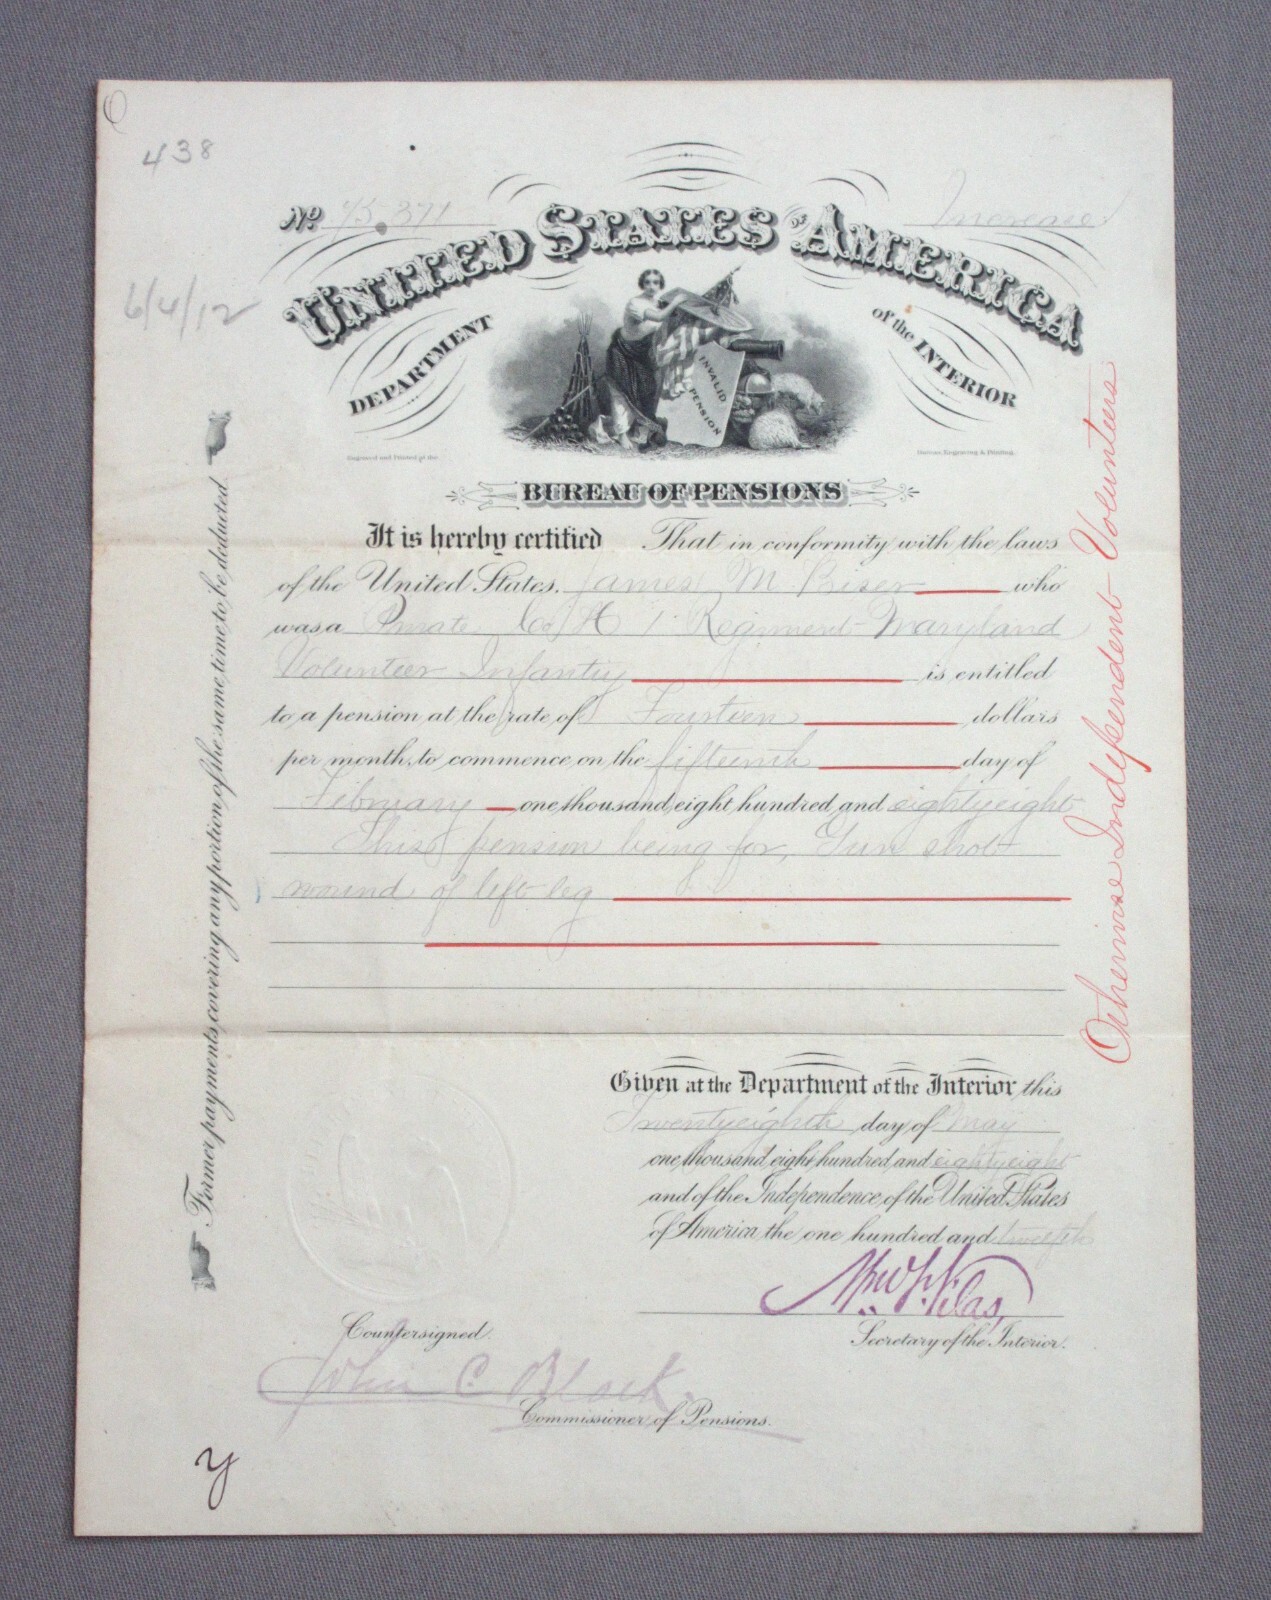 438
No 75.371
Increase
6/4/12
UNITED STATES OF AMERICA
DEPARTMENT of the INTERIOR
INVALID PENSION
Engraved and Printed at the
Bureau, Engraving & Printing.
BUREAU OF PENSIONS
It is hereby certified That in conformity with the laws
of the United States, James M. Biser who
was a Private Co H 1 Regiment Maryland
Volunteer Infantry is entitled
to a pension at the rate of Fourteen dollars
per month, to commence on the fifteenth day of
February one thousand eight hundred and eightyeight
This pension being for, Gun shot
wound of left leg
Otherwise Independent Volunteers
Former payments covering any portion of the same time to be deducted.
Given at the Department of the Interior this
Twentyeighth day of May
one thousand eight hundred and eightyeight
and of the Independence of the United States
of America the one hundred and twelfth
Wm F. Vilas,
Secretary of the Interior.
Countersigned.
John C. Black.
Commissioner of Pensions.
y